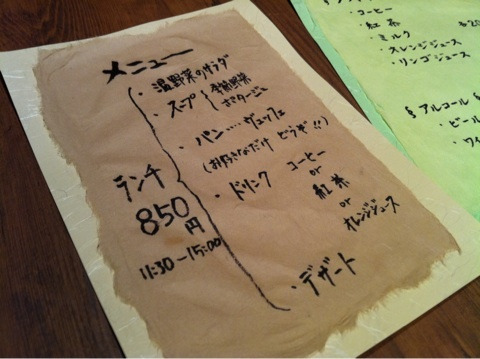 メニュー
・温野菜のサラダ
・スープ 季節野菜
ポタージュ
・パン....ビュッフェ
(お好きなだけ どうぞ!!)
・ドリンク コーヒー
or
紅茶
or
オレンジジュース
・デザート
ランチ
850
円
11:30-15:00
・コーヒー
・紅茶
・ミルク
・オレンジジュース
・リンゴジュース
アルコール
・ビール